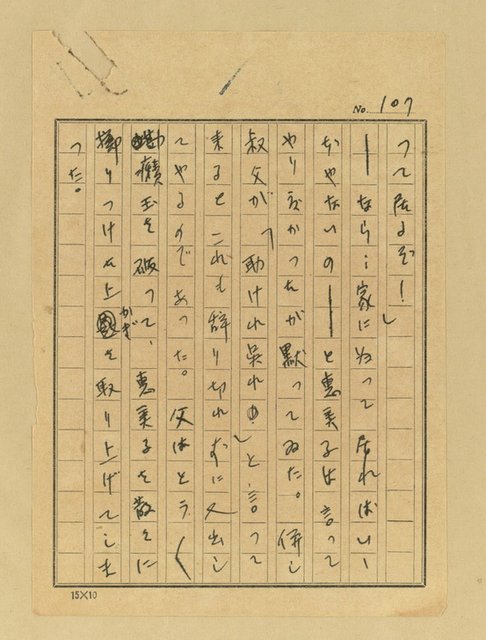 No. 107
って居るぞ！」
――なら…家に為って居ればいー
ぢやないの――と恵美子は言って
やり度かつたが黙ってゐた。併し
叔父が「助けれ呉れ」と言って
来ると これも辞り切れずに又出し
てやるのであった。父はとう〱
癇癪玉を破って、恵美子を散々に
擲りつけた上かぎを取り上げてしま
った。
15×10